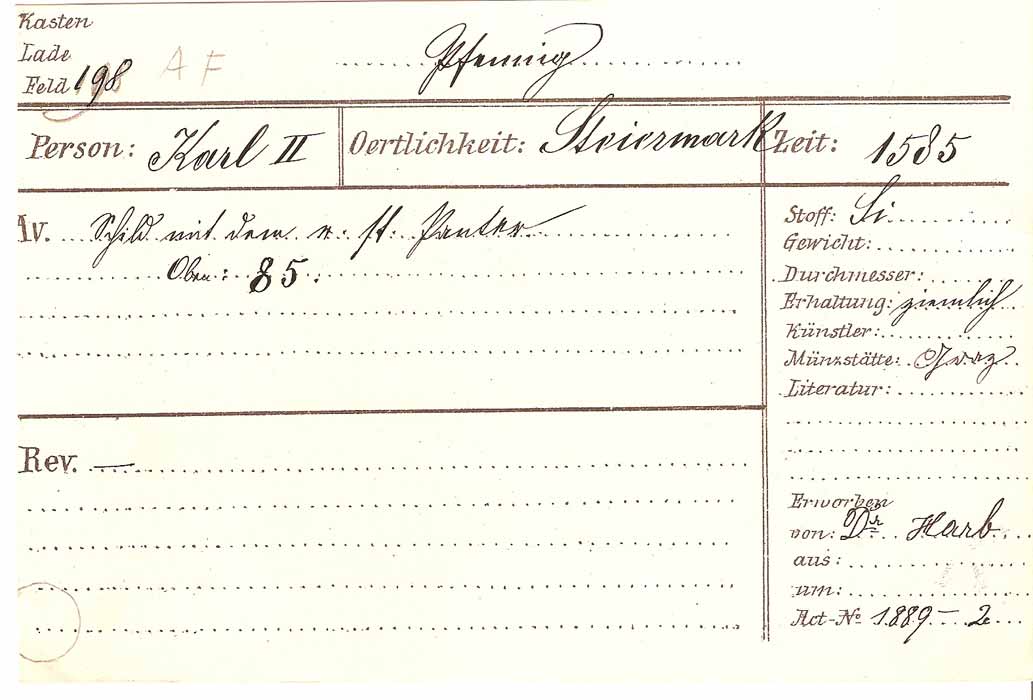 Kasten
Lade
Feld 198
AF
Pfennig
Person: Karl II
Oertlichkeit: Steiermark
Zeit: 1585
Av. Schild mit dem n. st. Panter
Oben: 85.
Rev. —
Stoff: Si
Gewicht:
Durchmesser:
Erhaltung: ziemlich
Künstler:
Münzstätte: Graz
Literatur:
Erworben
von: Dr. Harb
aus:
um:
Act-No 1889 – 2